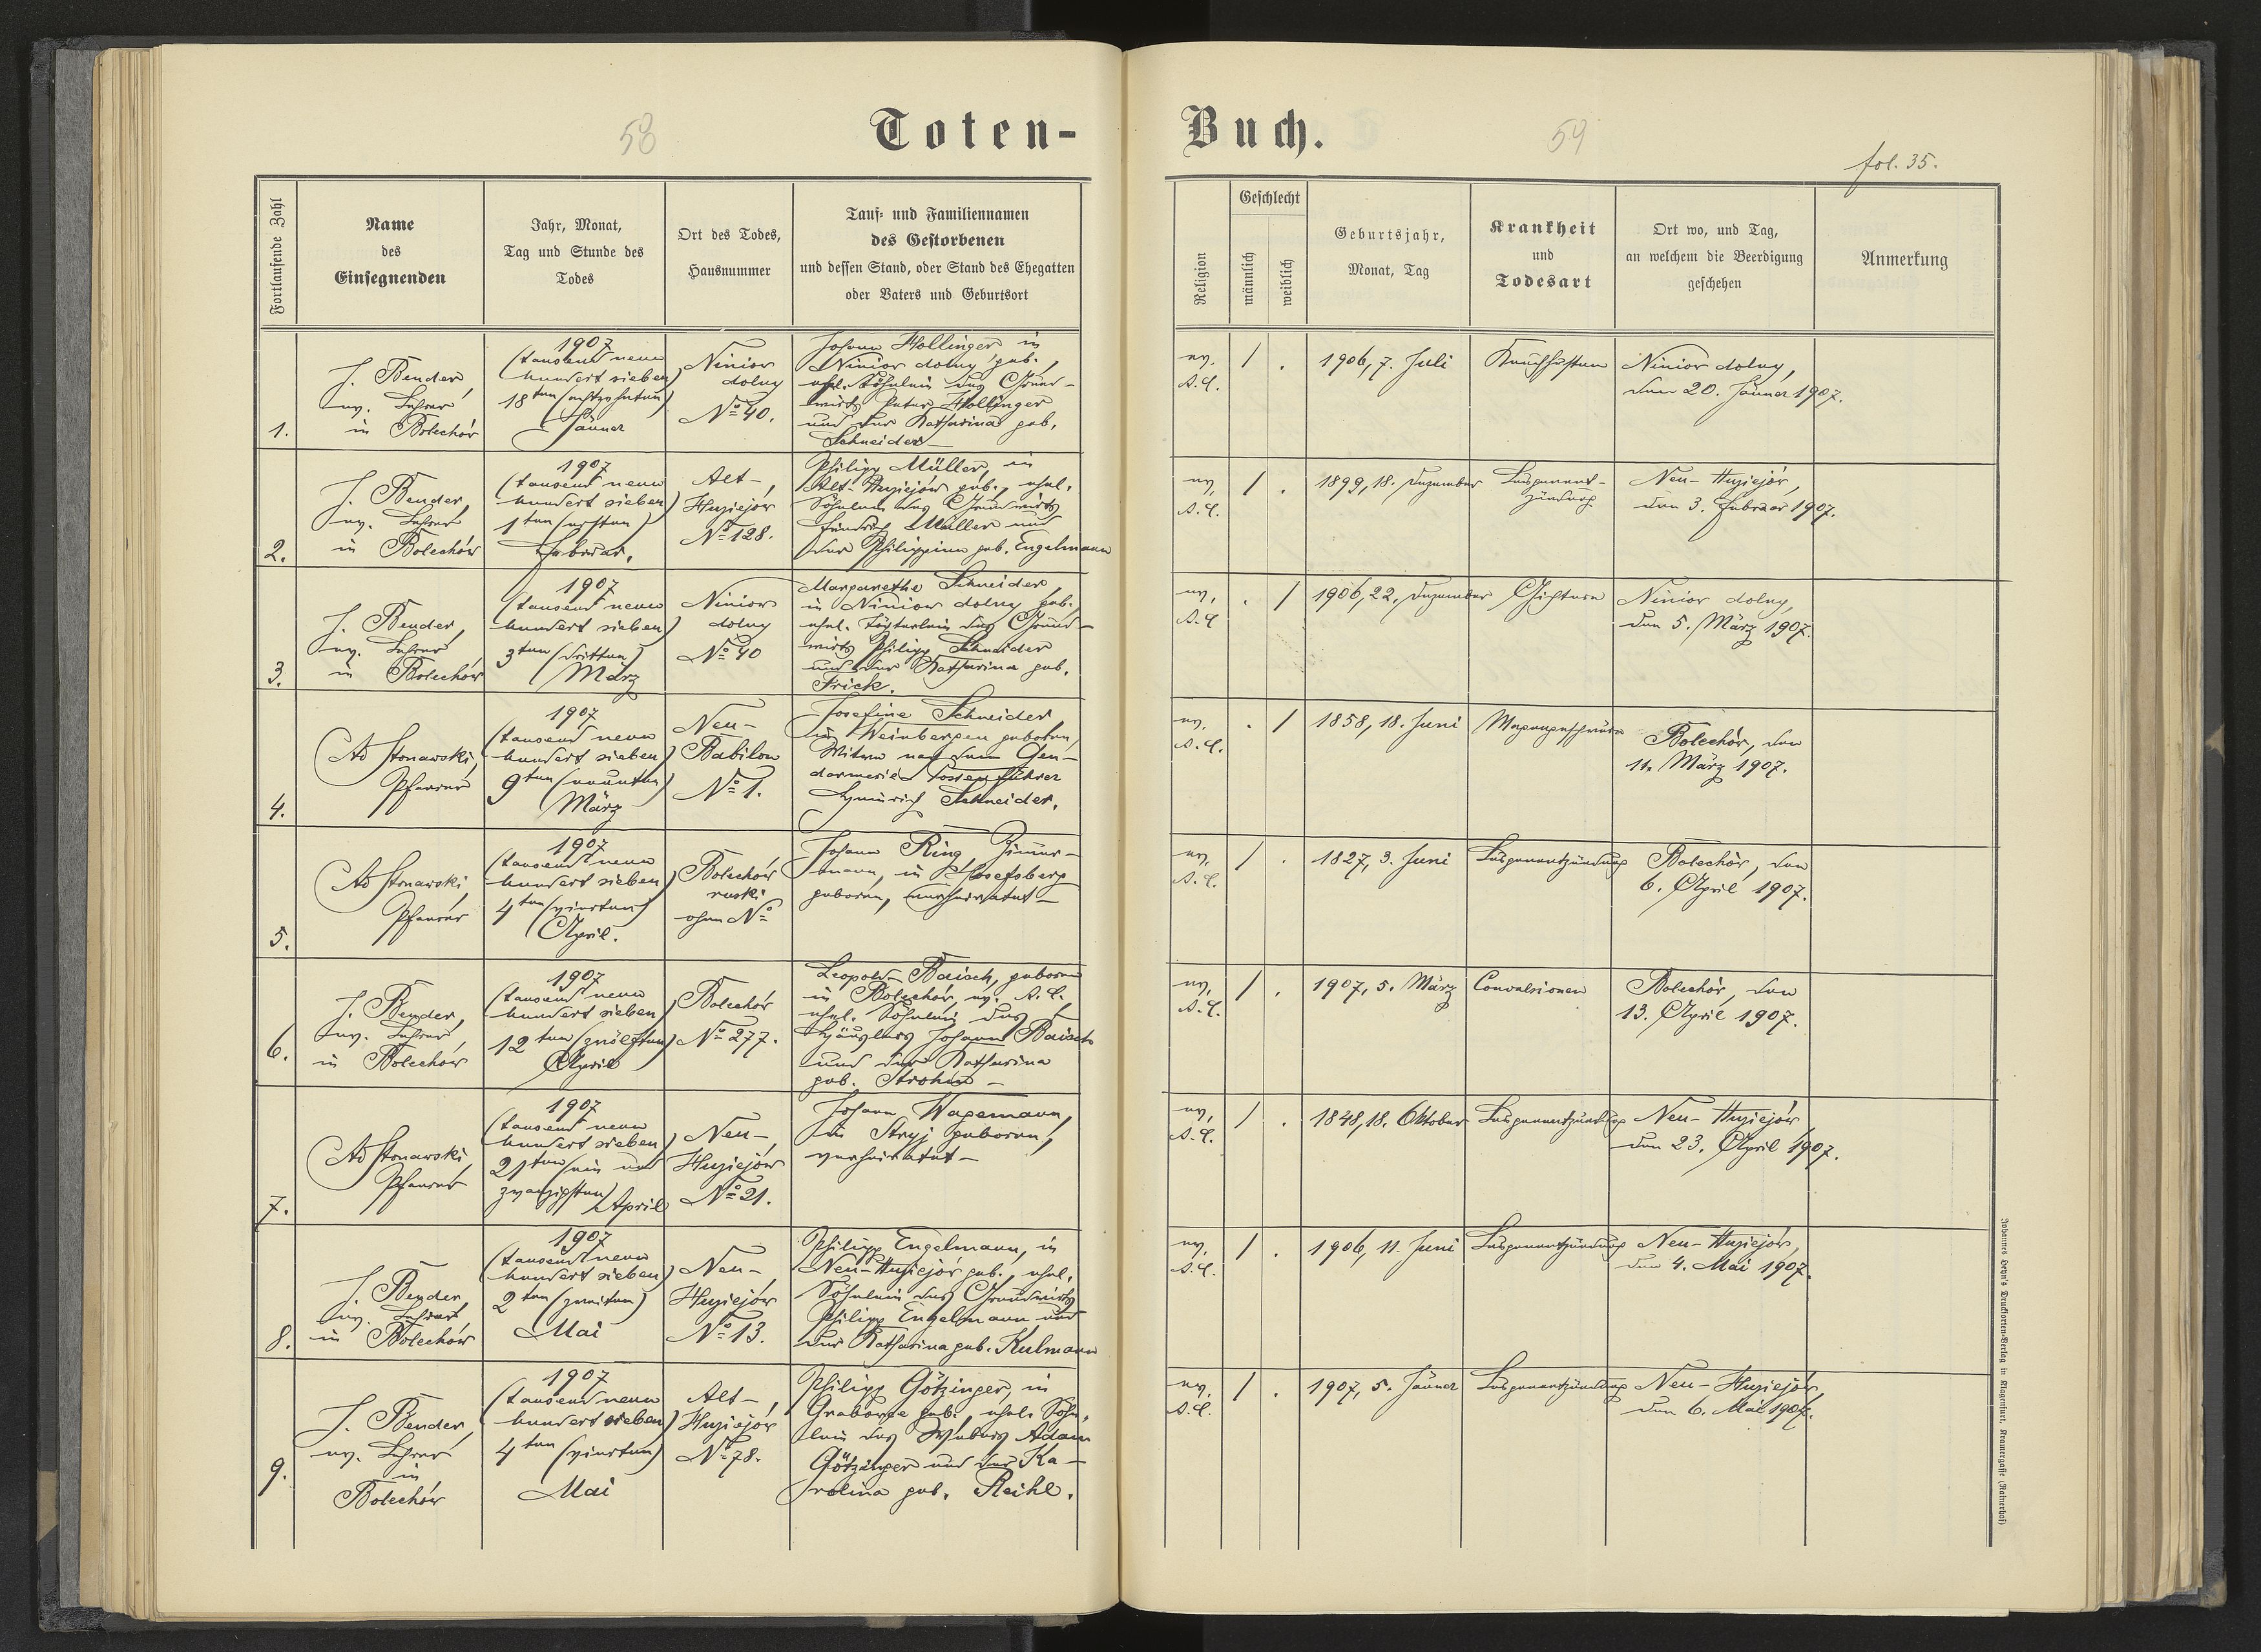 58
Toten-
Buch.
59
fol. 35.
Fortlaufende Zahl
Name
des
Einsegnenden
Jahr, Monat,
Tag und Stunde des
Todes
Ort des Todes,
Hausnummer
Tauf- und Familiennamen
des Gestorbenen
und dessen Stand, oder Stand des Ehegatten
oder Vaters und Geburtsort
Religion
Geschlecht
männlich
weiblich
Geburtsjahr,
Monat, Tag
Krankheit
und
Todesart
Ort wo, und Tag,
an welchem die Beerdigung
geschehen
Anmerkung
1.
J. Bender,
ev. Lehrer
in Bolechów
1907
(tausend neun
hundert sieben)
18ten (achtzehnten)
Jänner
Niniow
dolny
No 40.
Johann Hollinger in
Niniow dolny geb.,
ehel. Söhnlein des Grund-
wirts Peter Hollinger
und der Katharina geb.
Schneider
ev.
A.C.
1 .
1906, 7. Juli
Keuchhusten
Niniow dolny,
den 20. Jänner 1907.
2.
J. Bender,
ev. Lehrer
in Bolechów
1907
(tausend neun
hundert sieben)
1ten (ersten)
Februar.
Alt-
Huziejów
No 128.
Philipp Müller, in
Alt Huziejów geb., ehel.
Söhnlein des Grundwirts
Heinrich Müller und
der Philippine geb. Engelmann
ev.
A.C.
1 .
1899, 18. Dezember
Lungenent-
zündung
Neu-Huziejów,
den 3. Februar 1907.
3.
J. Bender,
ev. Lehrer
in Bolechów
1907
(tausend neun
hundert sieben)
3ten (dritten)
März
Niniow
dolny
No 40
Margarethe Schneider,
in Niniow dolny geb.,
ehel. Töchterlein des Grund-
wirts Philipp Schneider
und der Katharina geb.
Frick.
ev.
A.C.
. 1
1906, 22. Dezember
Gichtern
Niniow dolny,
den 5. März 1907.
4.
Ad Stonawski,
Pfarrer
1907
(tausend neun
hundert sieben)
9ten (neunten)
März
Neu-
Babilon
No 1.
Josefine Schneider
in Weinbergen geboren,
Witwe nach dem Gen-
darmerie Postenführer
Heinrich Schneider.
ev.
A.C.
. 1
1858, 18. Juni
Magengeschwür
Bolechów, den
11. März 1907.
5.
Ad Stonawski,
Pfarrer
1907
(tausend neun
hundert sieben)
4ten (vierten)
April.
Bolechów
ruski
ohne No
Johann Ring, Zimmer-
mann, in Josefsberg
geboren, verheiratet
ev.
A.C.
1 .
1827, 3. Juni
Lungenentzündung
Bolechów, den
6. April 1907.
6.
J. Bender,
ev. Lehrer
in Bolechów
1907
(tausend neun
hundert sieben)
12ten (zwölften)
April
Bolechów
No 277.
Leopold Baisch, geboren
in Bolechów, ev. A.C.
ehel. Söhnlein des
Häuslers Johann Baisch
und der Katharina
geb.
ev.
A.C.
1 .
1907, 5. März
Convulsionen
Bolechów, den
13. April 1907.
7.
Ad Stonawski,
Pfarrer
1907
(tausend neun
hundert sieben)
21ten (ein und
zwanzigsten) April
Neu-
Huziejów
No 21.
Johann Wagemann,
in Stryj geboren,
verheiratet
ev.
A.C.
1 .
1848, 18. Oktober
Lungenentzündung
Neu-Huziejów
den 23. April 1907.
8.
J. Bender,
ev. Lehrer
in Bolechów
1907
(tausend neun
hundert sieben)
2ten (zweiten)
Mai
Neu-
Huziejów
No 13.
Philipp Engelmann, in
Neu-Huziejów geb., ehel.
Söhnlein des Grundwirts
Philipp Engelmann und
der Katharina geb. Kulmann
ev.
A.C.
1 .
1906, 11. Juni
Lungenentzündung
Neu-Huziejów,
den 4. Mai 1907.
9.
J. Bender,
ev. Lehrer
in
Bolechów
1907
(tausend neun
hundert sieben)
4ten (vierten)
Mai
Alt-
Huziejów
No 78.
Philipp Götzinger, in
geb., ehel. Söhn-
lein des Webers Adam
Götzinger und der Ka-
rolina geb. Reihl.
ev.
A.C.
1 .
1907, 5. Jänner
Lungenentzündung
Neu-Huziejów,
den 6. Mai 1907.
Johannes Heyn's Drucksorten-Verlag in Klagenfurt, Kramergasse (Rainerhof)